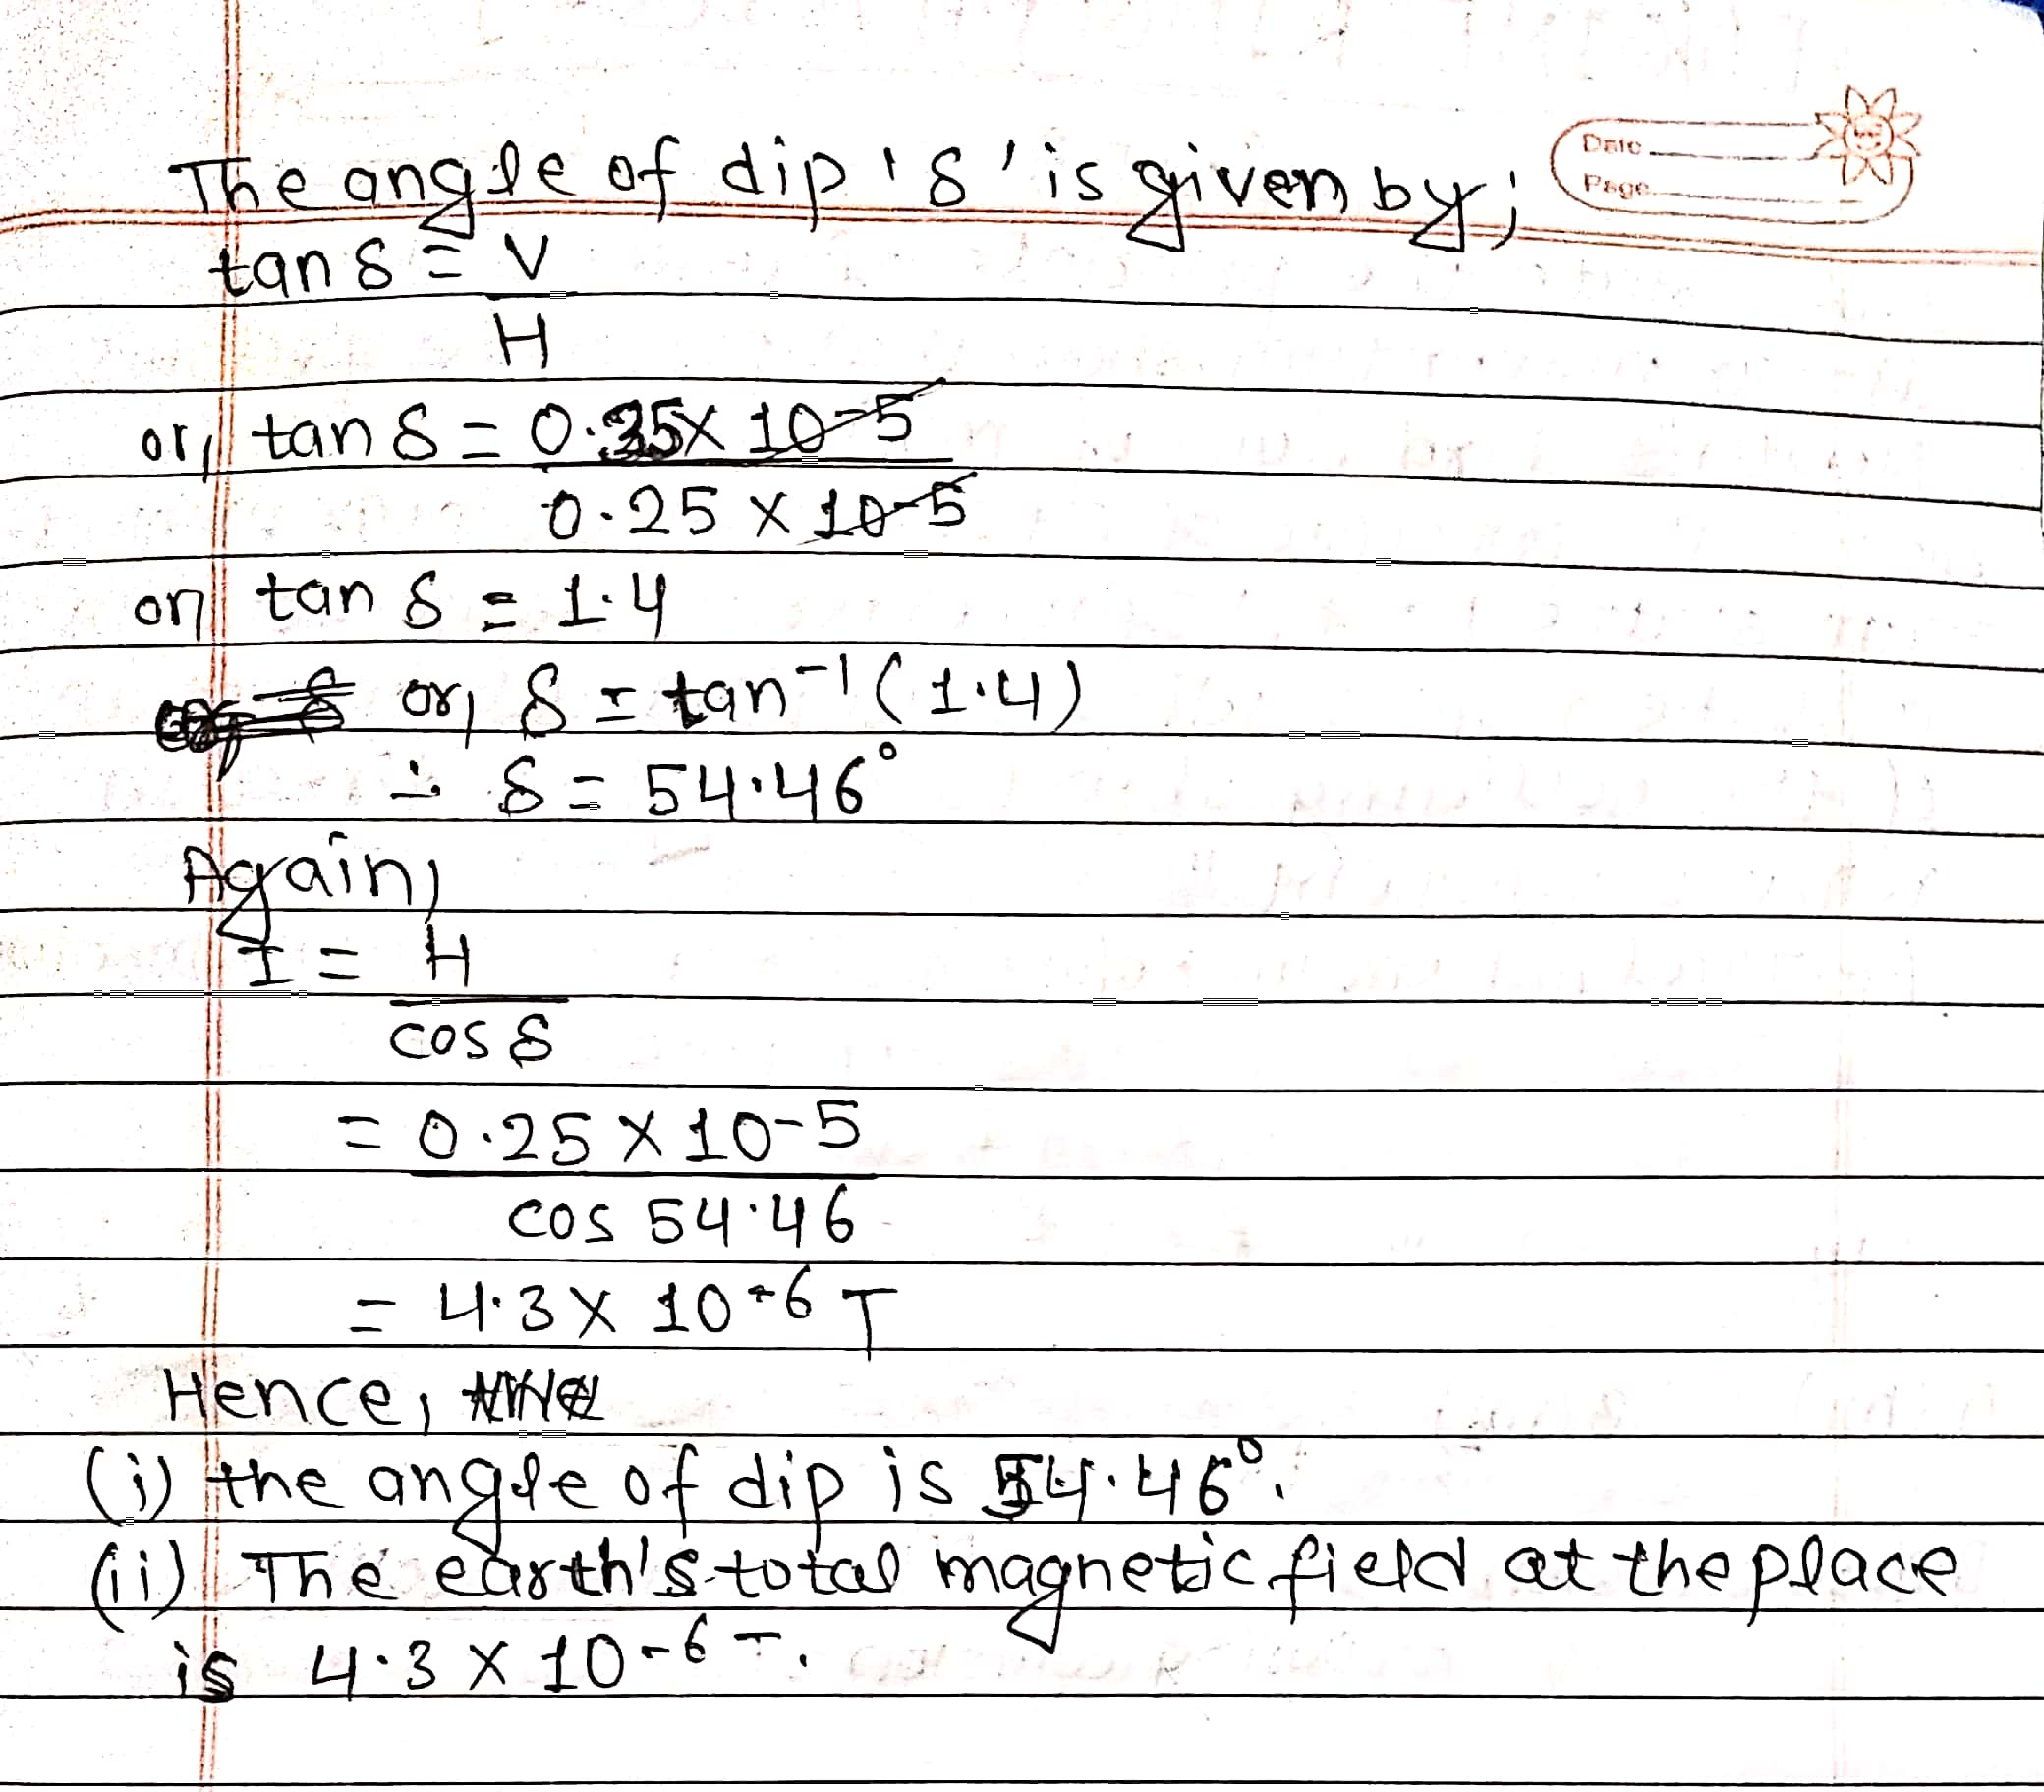 Date
Page
The angle of dip 'δ' is given by;
tan δ = V
H
or, tan δ = 0.35 x 10-5
0.25 x 10-5
or, tan δ = 1.4
or, δ = tan-1 (1.4)
∴ δ = 54.46°
Again,
I = H
cos δ
= 0.25 x 10-5
cos 54.46
= 4.3 x 10-6 T
Hence,
(i) the angle of dip is 54.46°.
(ii) The earth's total magnetic field at the place
is 4.3 x 10-6 T.